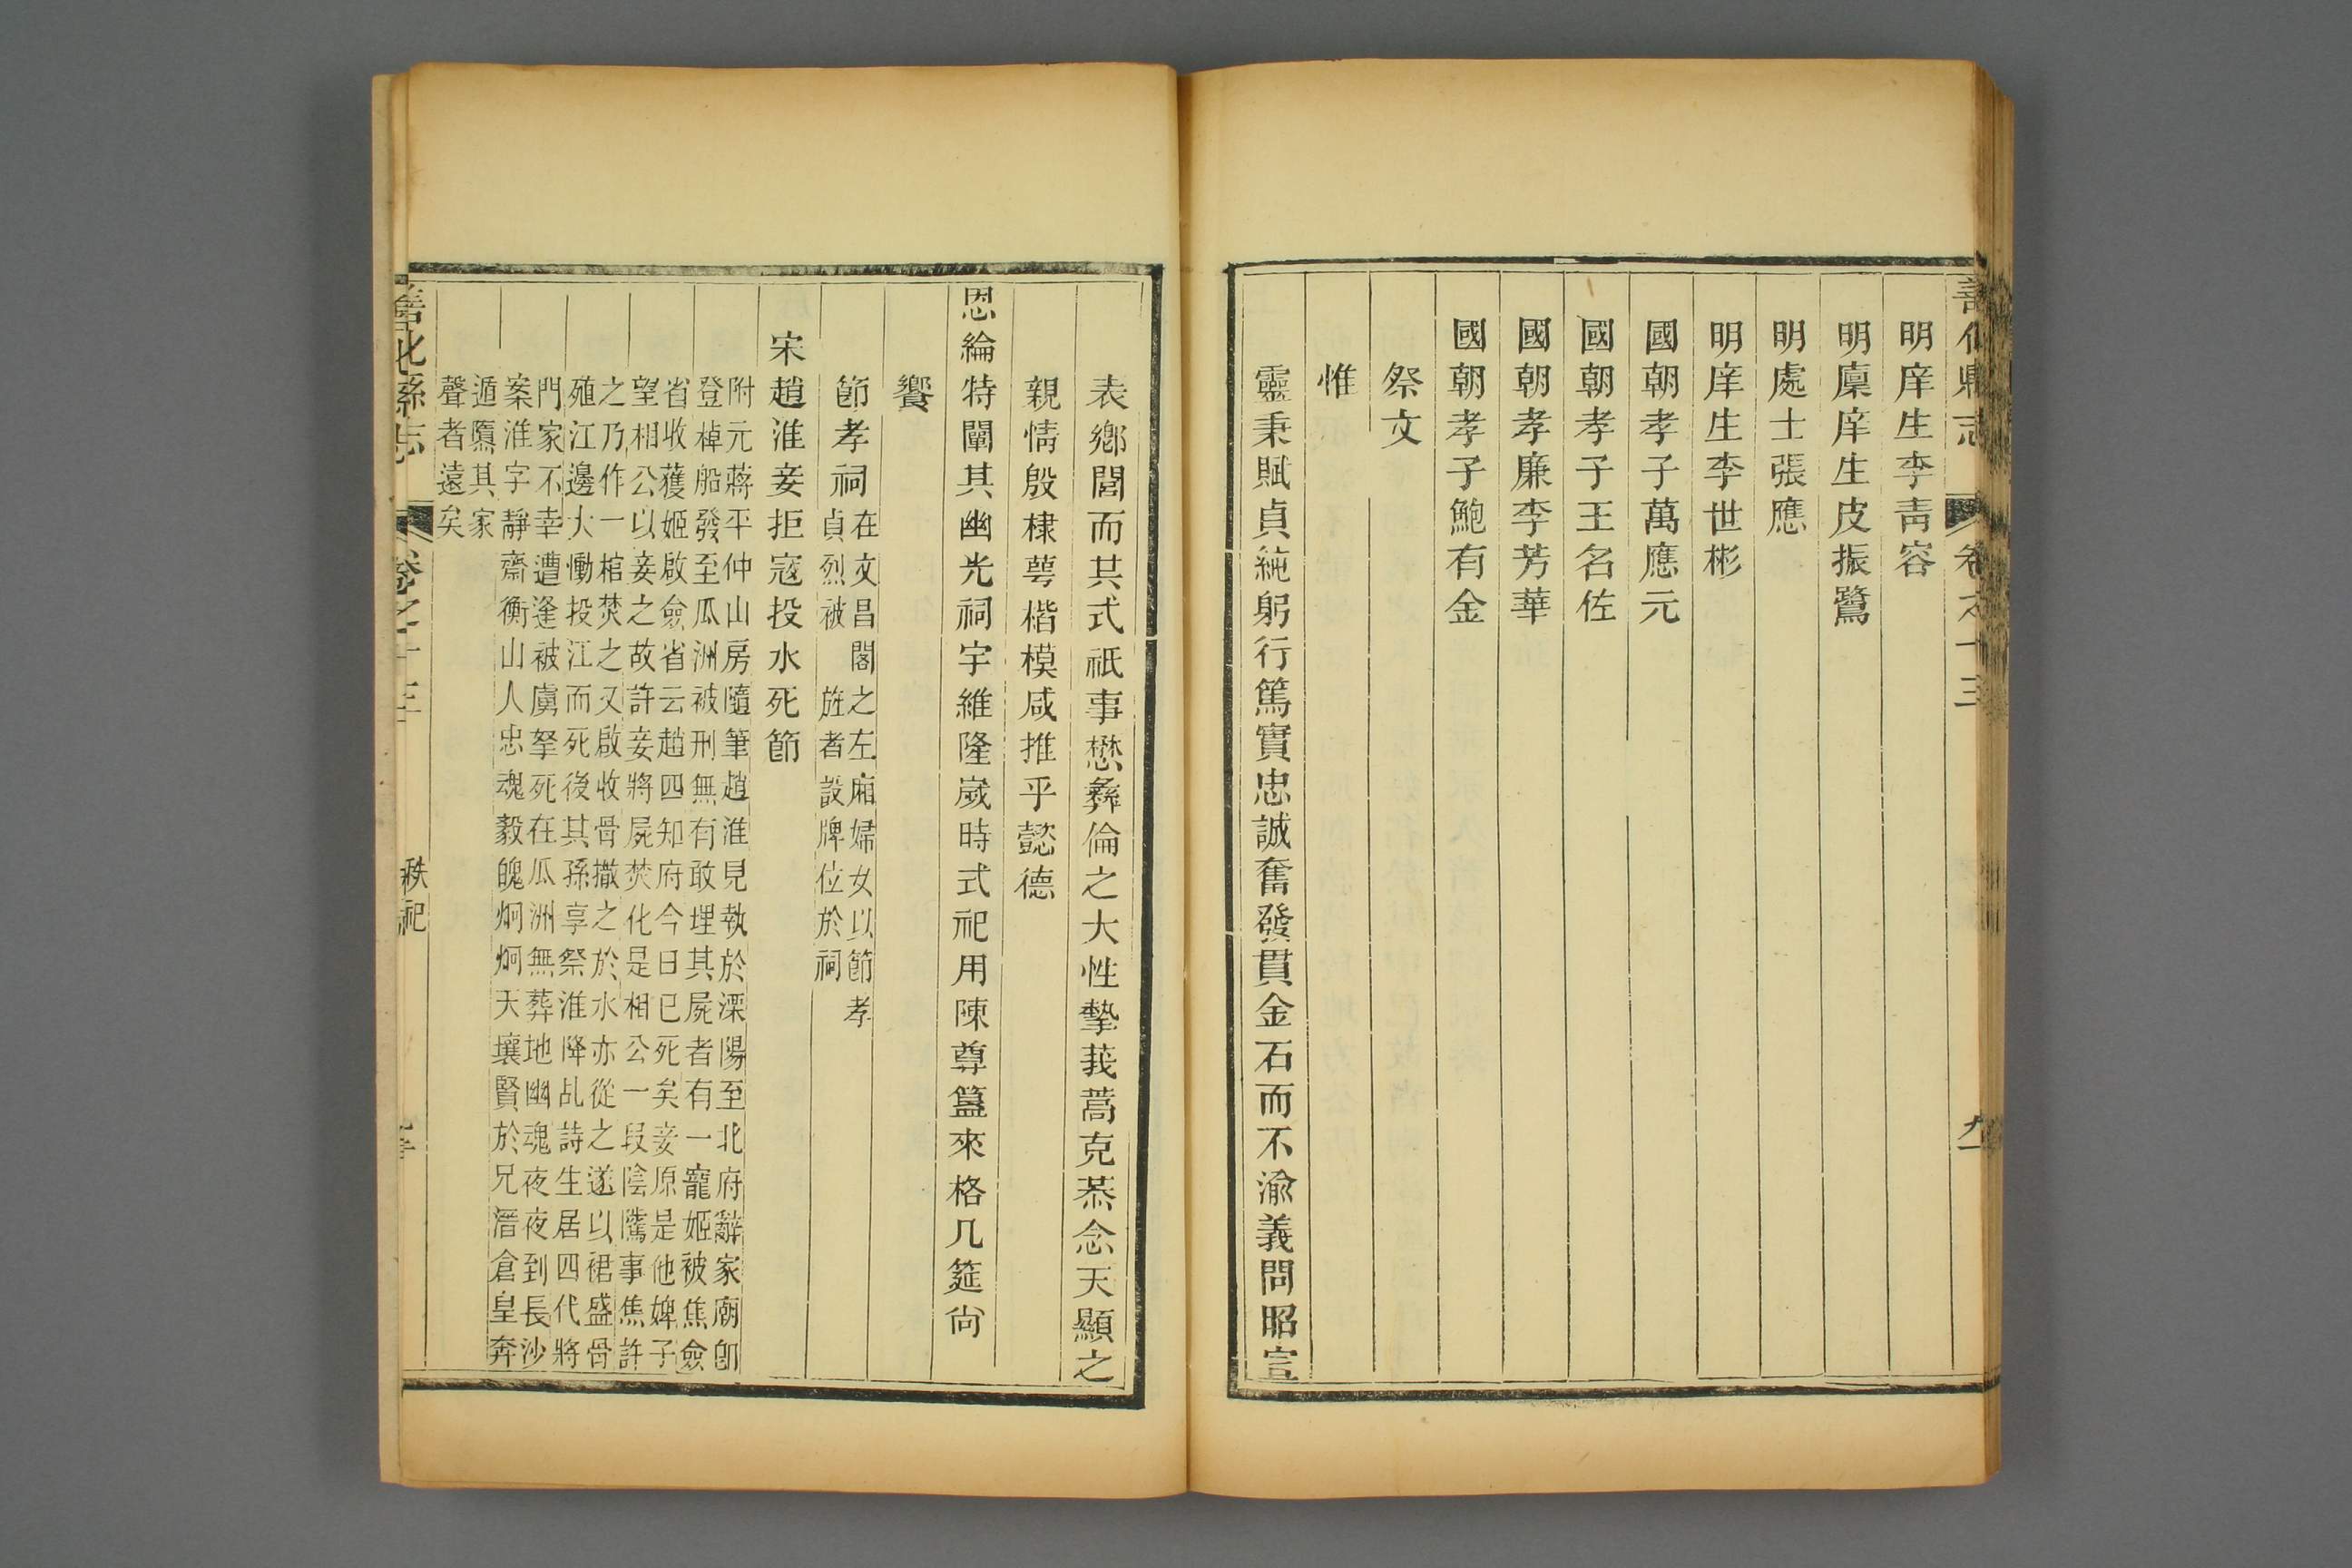 善化縣志
卷之十三
明庠生李靑容
明廩庠生皮振鷺
明處士張應
明庠生李世彬
國朝孝子萬應元
國朝孝子王名佐
國朝孝廉李芳華
國朝孝子鮑有金
祭文
惟
靈秉賦貞純躬行篤實忠誠奮發貫金石而不渝義問昭宣
表鄉閭而共式祇事懋彝倫之大性摯莪蒿克恭念天顯之
親情殷棣萼楷模咸推乎懿德
恩綸特闡其幽光祠宇維隆嵗時式祀用陳尊簋來格几筵尙
饗
節孝祠
在文昌閣之左廂婦女以節孝
貞烈被 旌者設牌位於祠
宋趙淮妾拒寇投水死節
附元蔣平仲山房隨筆趙淮見執於溧陽至北府辭家廟卽
登棹船發至瓜洲被刑無有敢埋其屍者有一寵姬被焦僉
省收獲姬啟僉省云趙四知府今日已死矣妾原是他婢子
望相公以妾之故許妾將屍焚化是相公一段陰隲事焦許
之乃作一棺焚之又啟收骨撒之於水亦從之遂以裙盛骨
殖江邊大慟投江而死後其孫享祭淮降乩詩生居四代將
門家不幸遭逢被虜拏死在瓜洲無葬地幽魂夜夜到長沙
案淮字靜齋衡山人忠魂毅魄炯炯天壤賢於兄溍倉皇奔
遁隳其家
聲者遠矣
善化縣志
卷之十三
秩祀